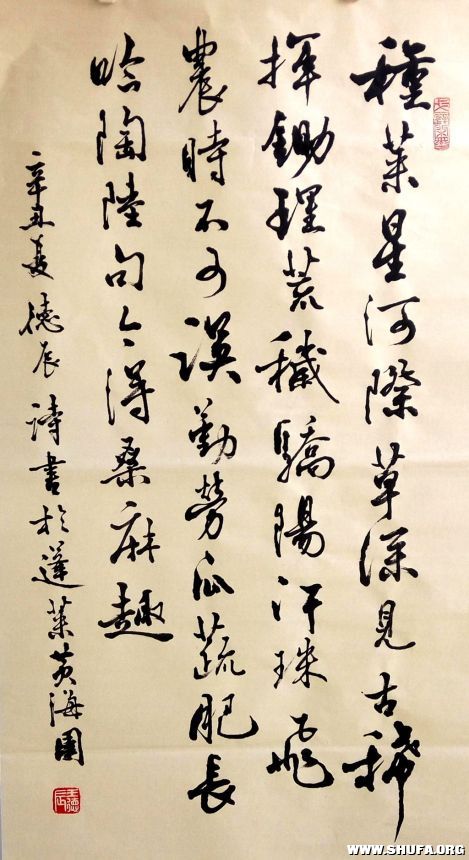 種菜星河際草深見古稀
揮鋤理荒穢驕陽汗珠飛
農時不可誤勤勞瓜蔬肥長
吟陶陸句今得桑麻趣
辛丑夏德辰詩書於蓬萊黃海園
WWW.SHUFA.ORG